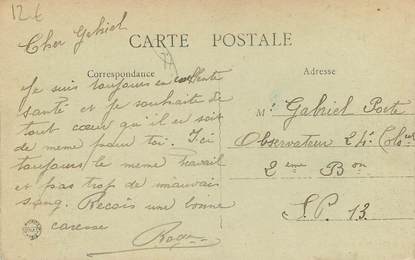 12 €
Cher Gabriel
CARTE POSTALE
Correspondance
Adresse
Je suis toujours en excellente
santé et je souhaite de
tout cœur qu'il en soit
de meme pour toi. Ici
toujours le meme travail
et pas trop de mauvais
sang. Recois une bonne
caresse
Roger
Mr Gabriel Porte
Observateur 24e Colonial
2eme Bon
S.P. 13.